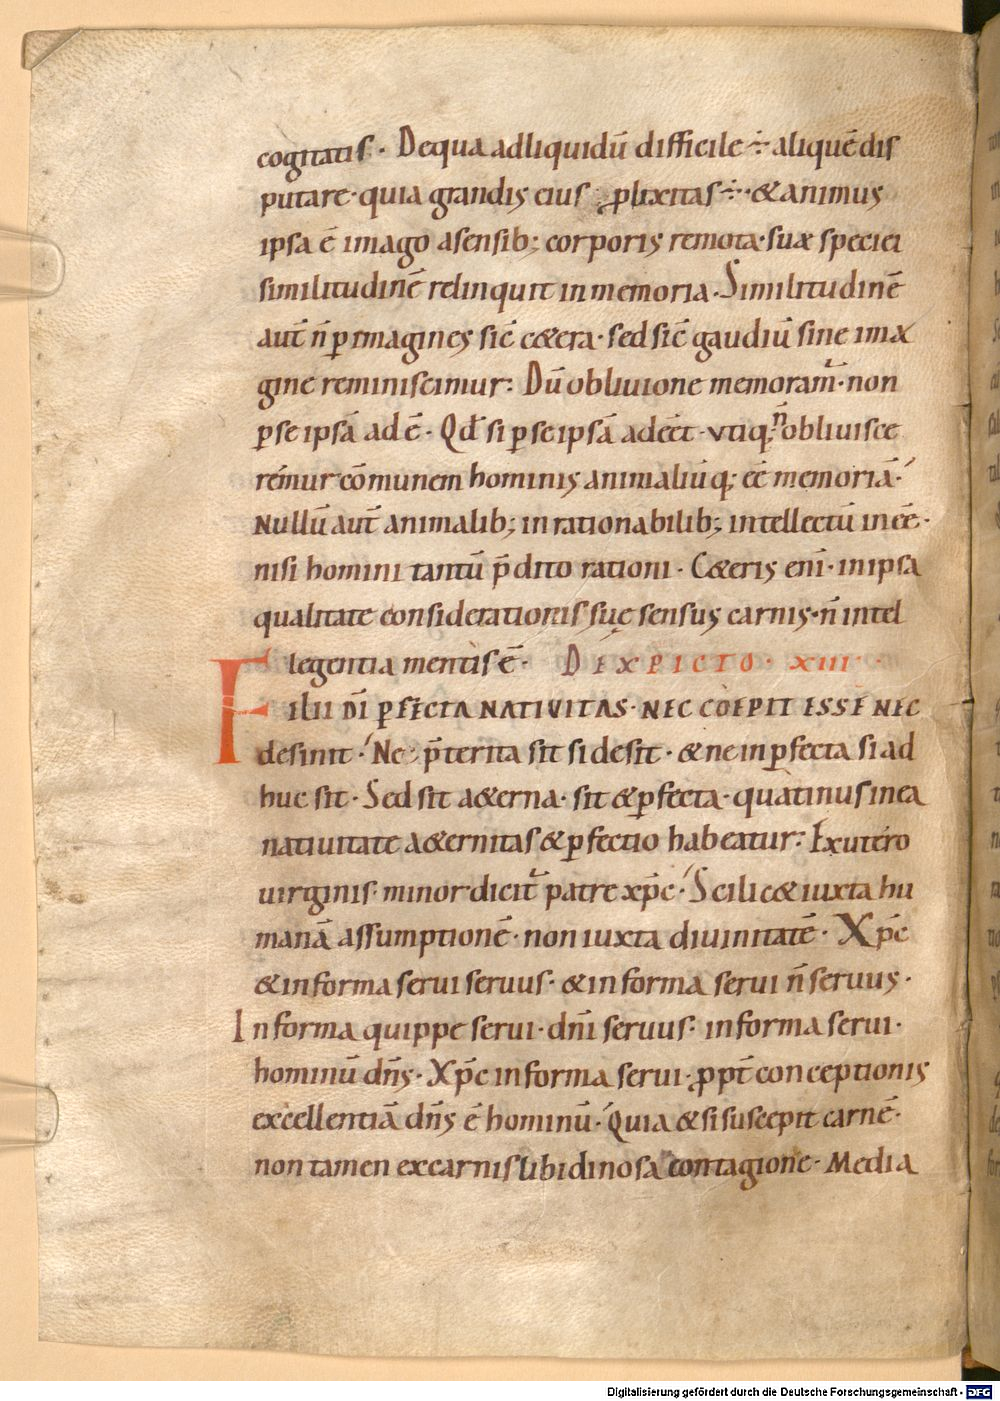 cogitatis · Dequa adliquidū difficile ÷ aliquē dis
putare · quia grandis eius · ꝓlixitas ÷ · & animus
ipsa ē imago asensib; corporis remota · suæ speciei
similitudinē relinquit in memoria · Similitudinē
aut̄ n̄ ꝑ imagines sic̄ c&era · sed sic̄ gaudiū sine ima
gine reminiscimur: Dū obliuione memoram̄ · non
ꝑ se ipsā adē · Qđ si ꝑ se ipsā adeēt · vtiq; n̄ obliuisce
remur cōmunem hominis animaliūq; eē memoriā ·
Nullū aut̄ animalib; inrationabilib; intellectū ineē ·
nisi homini tantū p̄dito rationi · C&eris eni̅ · inipsa
qualitate considerationis suę sensus carnis · n̄ intel
legentia mentis ē · DE XPICTO · XIII ·
Filii DI̅ ꝑFECTA NATIVITAS · NEC COEPIT ESSE NEC
desinit · Ne p̄terita sit si desit · & ne inꝑfecta si ad
huc sit · Sed sit a&erna · sit & ꝑfecta · quatinus inea
natiuitate a&ernitas & ꝑfectio habeatur: Exutero
uirginis · minor dicit̄ patre xp̄c · Scilic& iuxta hu
manā assumptionē · non iuxta diuinitatē · Xp̄c
& in forma serui seruus · & in forma serui n̄ seruus ·
In forma quippe serui · dn̄i seruus: in forma serui ·
hominū dn̄s · Xp̄c in forma serui · ꝓpt̄ conceptionis
excellentiā dn̄s ē hominū · Quia & si suscepit carnē ·
non tamen excarnis libidinosa contagione · Media
Digitalisierung gefördert durch die Deutsche Forschungsgemeinschaft - DFG